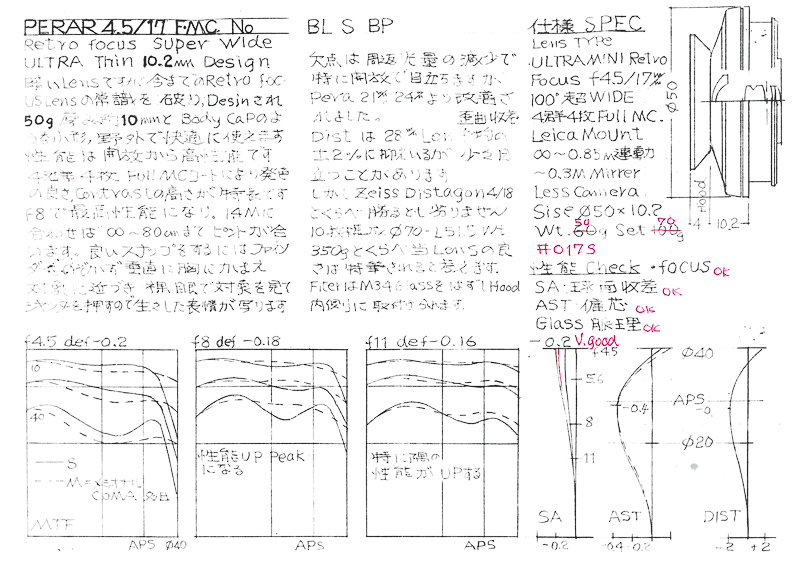 PERAR 4.5/17 F.MC. No
BL S BP
Retro focus Super Wide
ULTRA Thin 10.2mm Design
暗いLensですが今までのRetro foc-
us Lensの常識を破り、Desinされ
50g 10mmとBody Capのよ
うな小形、野外で快適に使えます
性能は開放から高性能です
4群4枚 Full MCコートにより発色
の良さ、Contrastの高さが特長です
F8で最高性能になり、1.4Mに
合わせば∞〜80cmまでピントが合
います。良いスナップをするにはファイン
垂直に胸にかまえ
対象に近づき 裸眼で対象を見て
シャッタを押すので生きした表情が写ります
欠点は周辺光量の減少で
特に開放で目立ちますが
Perar 21mm 24mmより改善さ
れました。 歪曲収差
Distは28mm Lens
±2%に抑えているが 少々目
立つことがあります
しかしZeiss Distagon 4/18
とくらべ勝るとし劣りません
350gとくらべ当Lensの良
さは特筆されると考えます。
FilterはM34 GlassをはずしHood
内側に取付けられます。
仕様 SPEC
Lens TYPE
ULTRA MINI Retro
Focus f4.5/17mm
100°超WIDE
4群4枚 Full MC.
Leica Mount
∞〜0.85m連動
〜0.3M Mirrer
Less Camera
Sise Ø50×10.2
Wt. 59g Set 70g
#017S
性能 Check・focus OK
SA・球面収差 OK
AST・偏芯 OK
Glass 脈理 OK
-0.2 V.good
Ø50
Hood
4
10.2
f4.5 def -0.2
10
40
S
M=メリジオナル
COMA
MTF
APS Ø40
f8 def -0.18
性能UP Peak
になる
APS
f11 def -0.16
特に隅の
性能がUPする
APS
f4.5
5.6
8
11
SA
-0.2
-0.4
AST
-0.4 -0.2
Ø40
APS
-0
Ø20
DIST
-2 +2